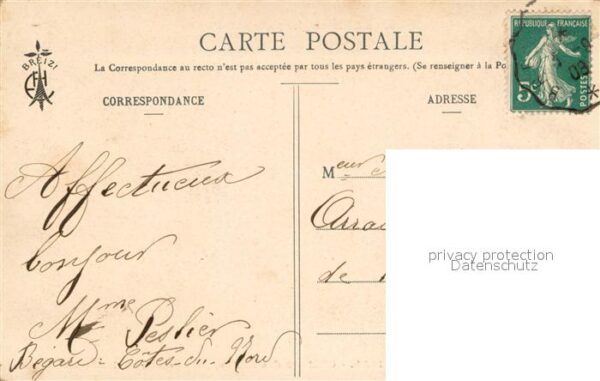 BREIZ!
CARTE POSTALE
REPUBLIQUE FRANÇAISE
La Correspondance au recto n'est pas acceptée par tous les pays étrangers. (Se renseigner à la Po
5c
POSTES
CORRESPONDANCE
ADRESSE
Affectueux
bonjour
Mme Peslier
Bégard - Côtes-du-Nord
Meur
de
privacy protection
Datenschutz